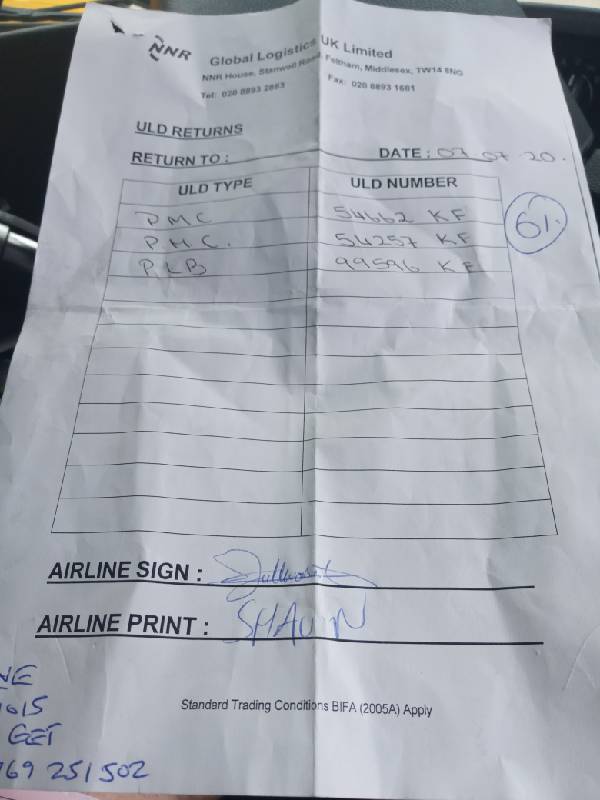 NNR Global Logistics UK Limited
NNR House, Stanwell Road, Feltham, Middlesex, TW14 8NG
Tel: 020 8893 2863 Fax: 020 8893 1681
ULD RETURNS
RETURN TO : DATE : 07 07 20.
ULD TYPE ULD NUMBER
PMC 54662 KF
PMC. 54257 KF
PLB 99596 KF
61.
AIRLINE SIGN :
AIRLINE PRINT : SHAUN
Standard Trading Conditions BIFA (2005A) Apply
NE
1015
GET
769 251502